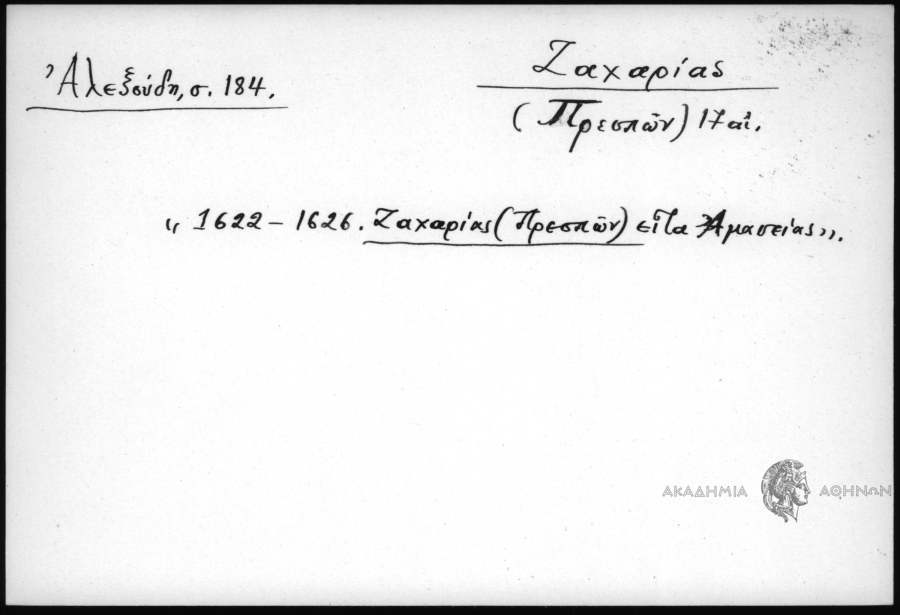 Ἀλεξούδη, σ. 184.
Ζαχαρίας
(Πρεσπῶν) 17 αἰ.
“ 1622 – 1626. Ζαχαρίας (Πρεσπῶν) εἶτα Ἀμασείας”.
ΑΚΑΔΗΜΙΑ ΑΘΗΝΩΝ